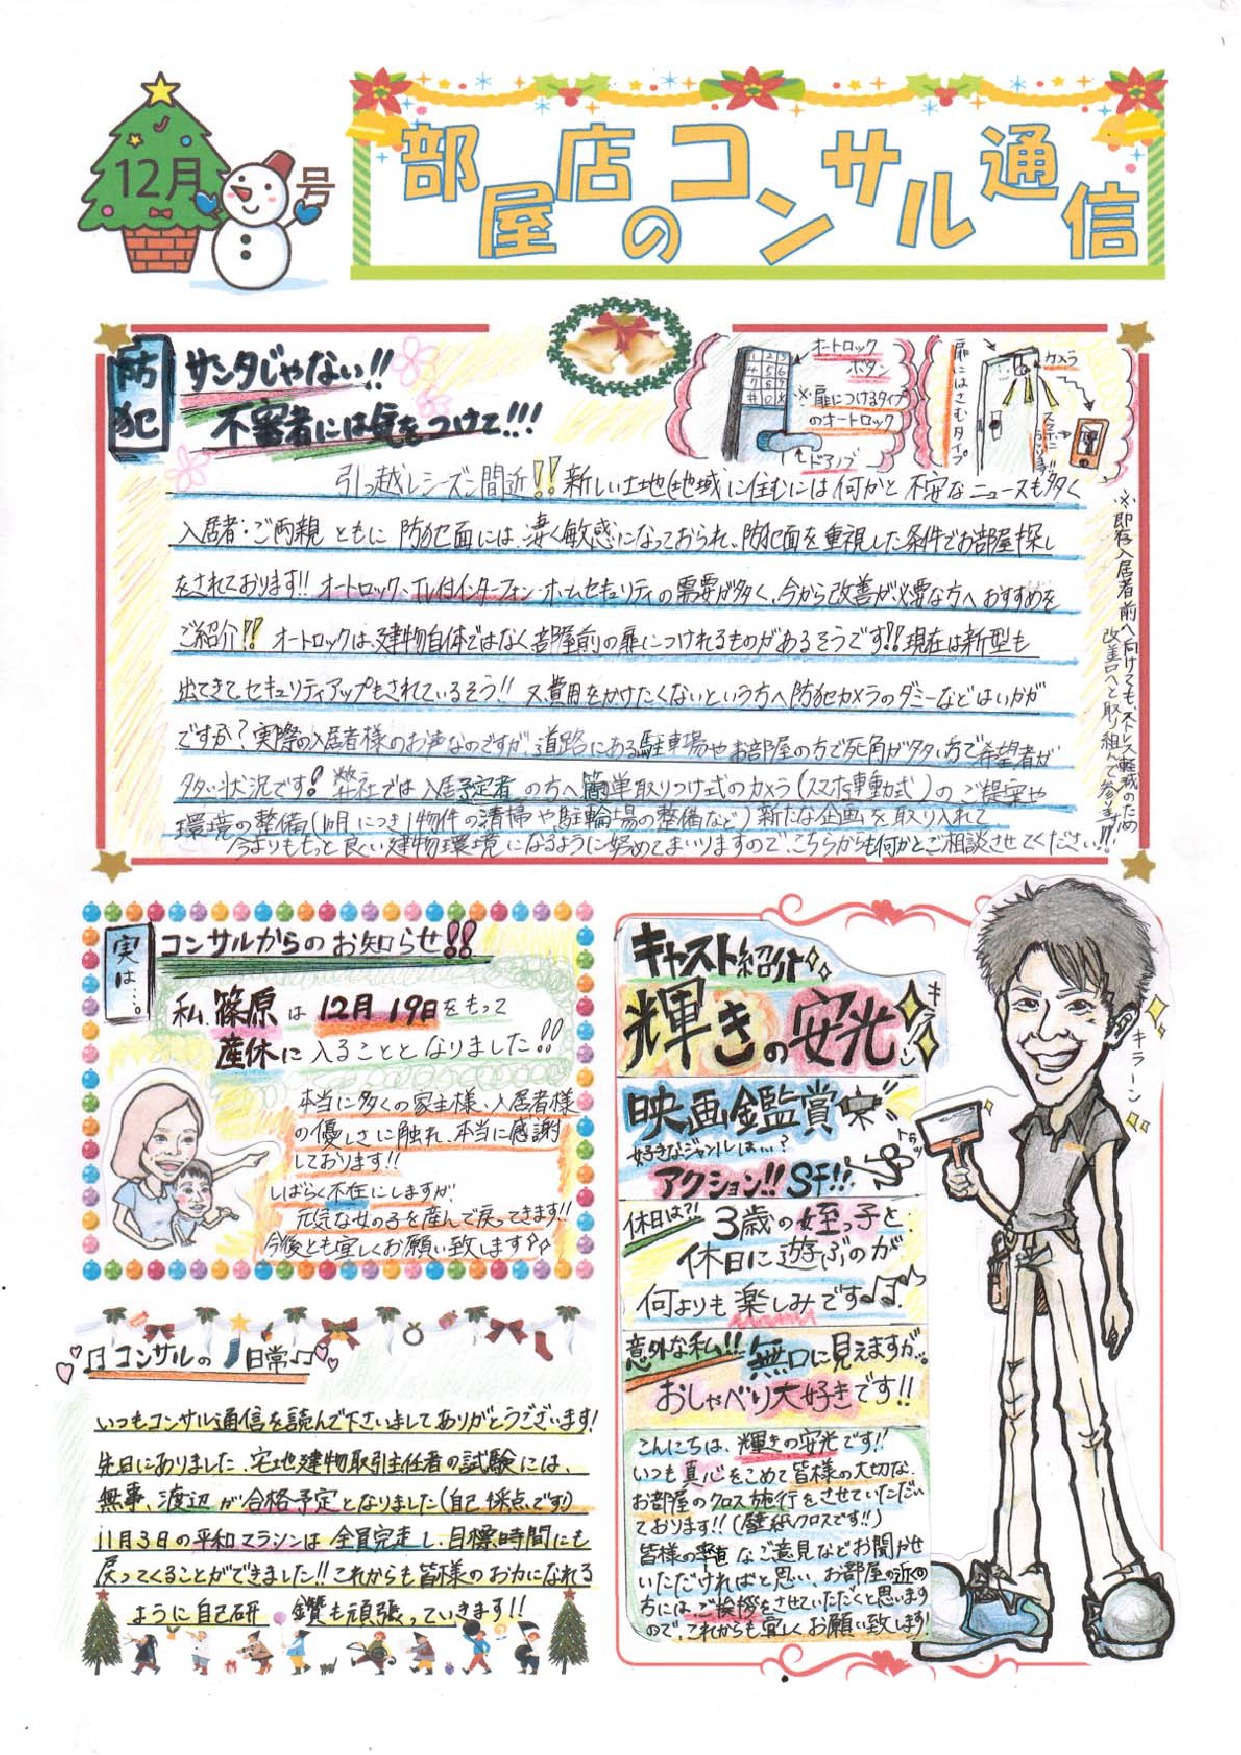 12月号
部屋店のコンサル通信
防犯
サンタじゃない!!
不審者には気をつけて!!!
オートロック
ボタン
※扉につけるタイプ
のオートロック
ドアノブ
扉にはさむタイプ
カメラ
スマホに
引っ越しシーズン間近!! 新しい土地(地域)に住むには何かと不安なニュースも多く
入居者・ご両親ともに防犯面には、凄く敏感になっておられ、防犯面を重視した条件でお部屋探し
をされております!! オートロック・TV付インターフォン・ホームセキュリティの需要が多く、今から改善が必要な方へおすすめを
ご紹介!! オートロックは、建物自体ではなく部屋前の扉につけれるものがあるそうです!! 現在は新型も
出てきてセキュリティアップもされているそう!! 又費用をかけたくないという方へ防犯カメラのダミーなどはいかが
ですか?実際の入居者様のお声なのですが、道路にある駐車場やお部屋の方で死角が多い方で希望者が
多い状況です! 弊社では入居予定者の方へ簡単取りつけ式のカメラ(スマホ連動式)のご提案や
環境の整備(1ヶ月につき1物件の清掃や駐輪場の整備など)新たな企画を取り入れて
今よりももっと良い建物環境になるように努めてまいりますので、こちらからも何かとご相談させてください!!
※即存入居者前へ向けてもストレス軽減のため
改善へと取り組んで参ります!!
実は…。
コンサルからのお知らせ!!
私、篠原は12月19日をもって
産休に入ることとなりました!!
本当に多くの家主様、入居者様
の優しさに触れ、本当に感謝
しております!!
しばらく不在にしますが、
元気な女の子を産んで戻ってきます!!
今後とも宜しくお願い致します
キャスト紹介
輝きの安光
キラーン
映画鑑賞
好きなジャンルは…?
アクション!! SF!!
休日は?!
3歳の姪っ子と、
休日に遊ぶのが
何よりも楽しみです♪♫
意外な私!!
無口に見えますが。
おしゃべり大好きです!!
キラーン
こんにちは、輝きの安光です!!
いつも真心をこめて皆様の大切な、
お部屋のクロス施行をさせていただい
ております!!(壁紙クロスです!!)
皆様の率直なご意見などお聞かせ
いただければと思い、お部屋の近くの
方には、ご挨拶をさせていただくと思います
ので、これからも宜しくお願い致します!
♫コンサルの日常♫
いつもコンサル通信を読んで下さいましてありがとうございます!
先日にありました、宅地建物取引主任者の試験には、
無事、渡辺が合格予定となりました(自己採点です!)
11月3日の平和マラソンは全員完走し、目標時間にも
戻ってくることができました!! これからも皆様のお力になれる
ように自己研鑽も頑張っていきます!!